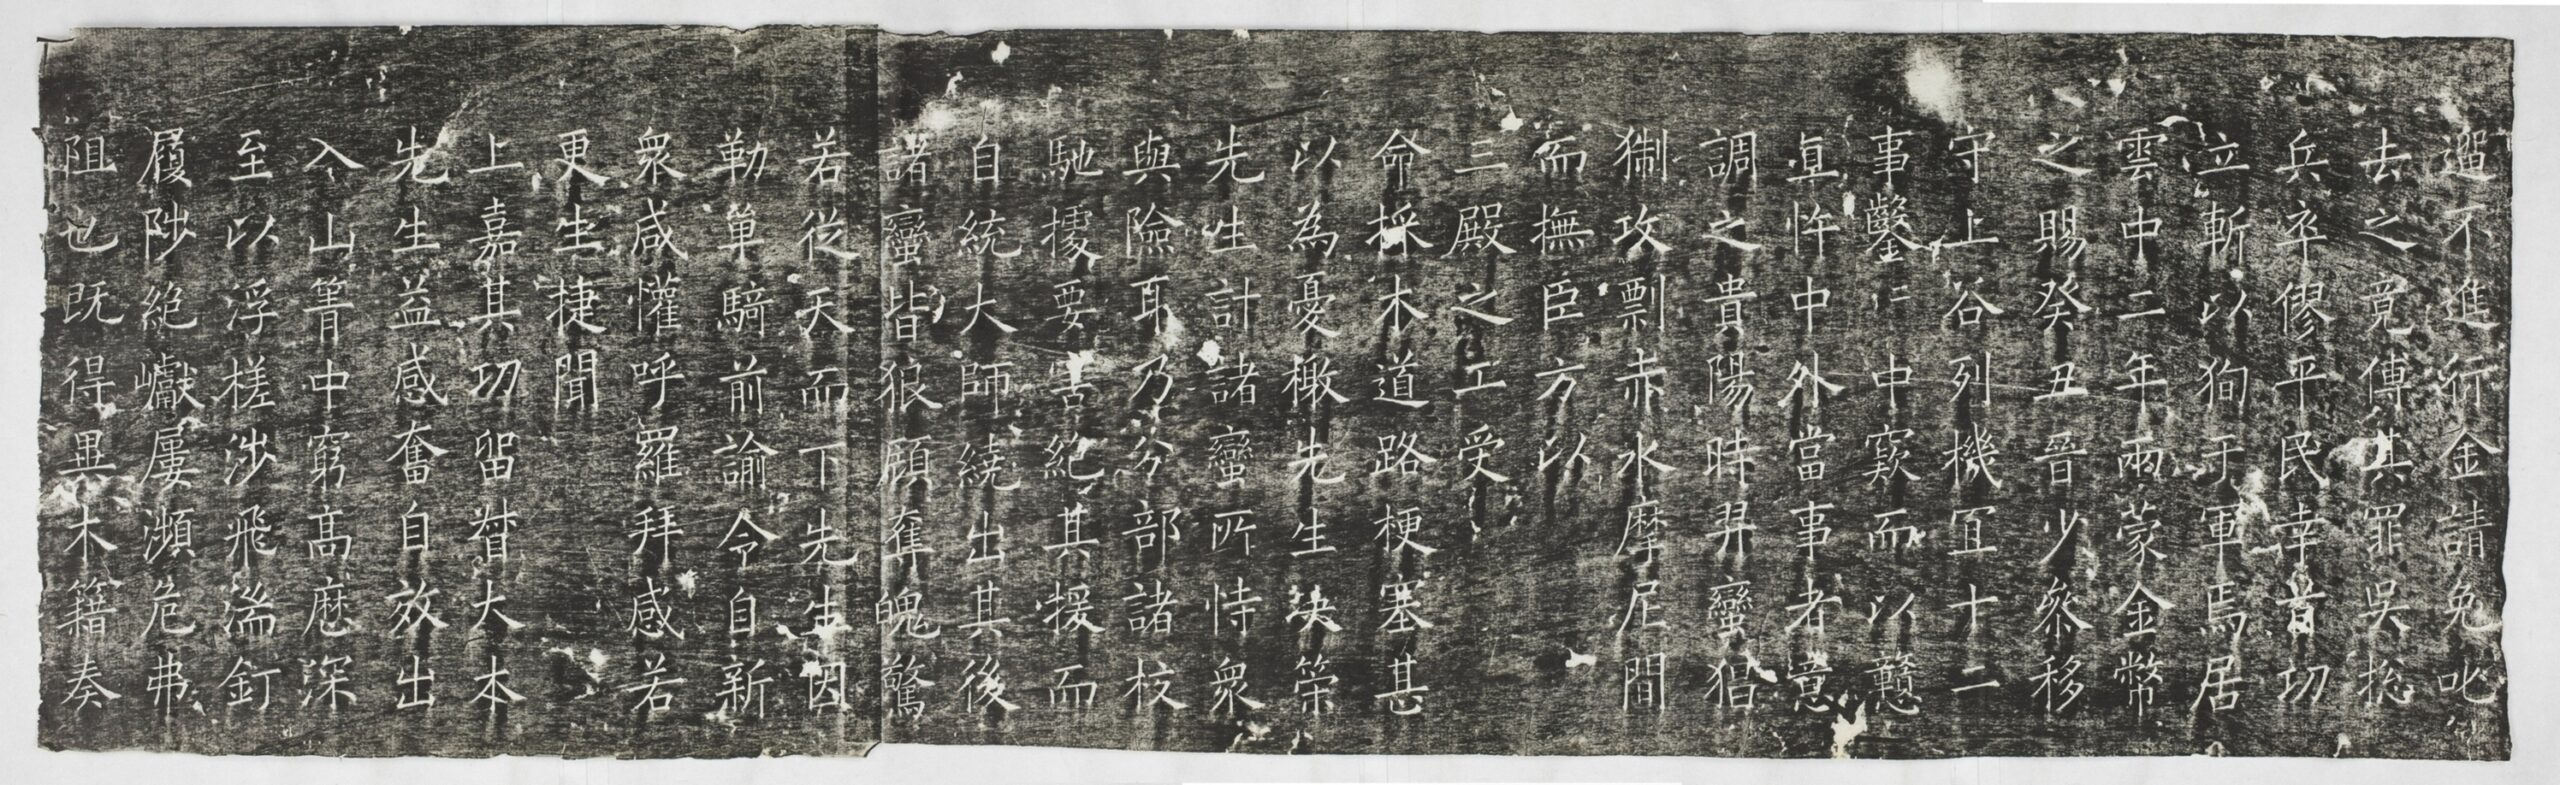 選不進衍金請免叱
去之竟傅其罪吳揔
兵卒僇平民幸首功
立斬以徇于軍焉居
雲中二年兩蒙金幣
之賜癸丑晉少叅移
守上谷列機宜十二
事鑿〻中窽而以戇
直忤中外當事者意
調之貴陽時羿蠻猖
猘攻剽赤水摩尼間
而撫臣方以
三殿之工受
命採木道路梗塞甚
以為憂檄先生決策
先生計諸蠻所恃衆
與險耳乃分部諸校
馳擾要害絶其援而
自統大師繞出其後
諸蠻皆狼顧奪魄驚
若從天而下先生因
勒單騎前諭令自新
衆咸懽呼羅拜感若
更生捷聞
上嘉其功留督大本
先生益感奮自效出
入山箐中窮高歴深
至以浮槎涉飛湍釘
履陟絶巘屢瀕危弗
阻也既得異木籍奏